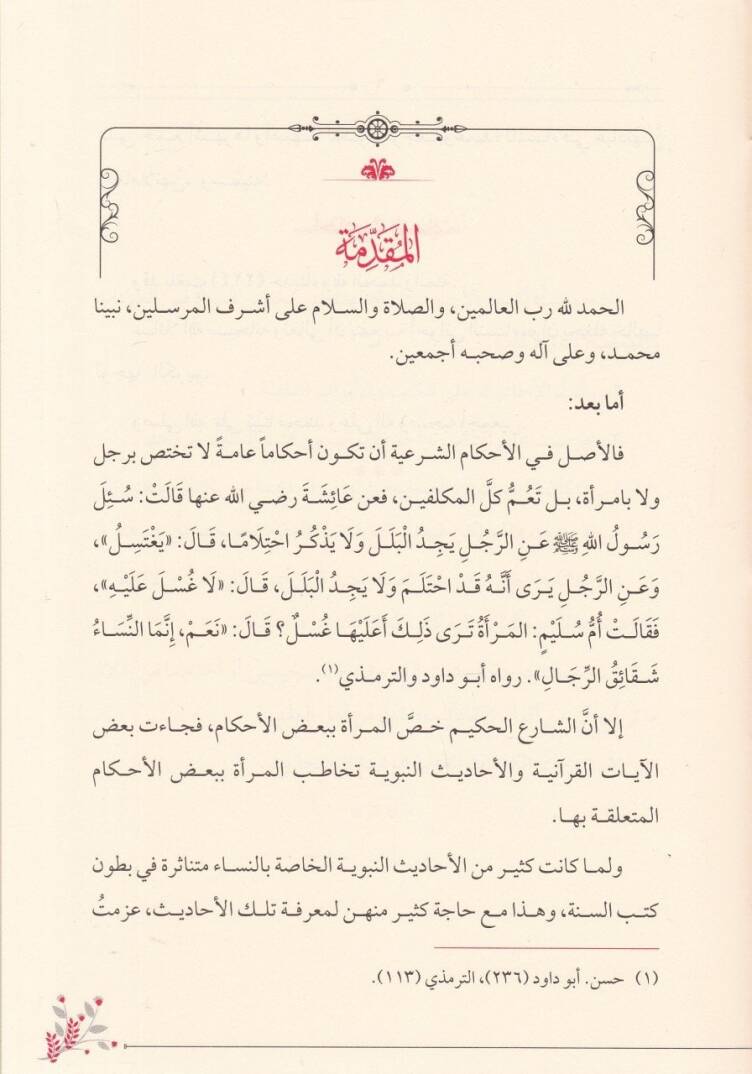 المُقَدِّمَة
الحمد لله رب العالمين، والصلاة والسلام على أشرف المرسلين، نبينا
محمد، وعلى آله وصحبه أجمعين.
أما بعد:
فالأصل في الأحكام الشرعية أن تكون أحكاماً عامةً لا تختص برجل
ولا بامرأة، بل تَعُمُّ كلَّ المكلفين، فعن عَائِشَةَ رضي الله عنها قَالَتْ: سُئِلَ
رَسُولُ اللهِ ﷺ عَنِ الرَّجُلِ يَجِدُ الْبَلَلَ وَلَا يَذْكُرُ احْتِلَامًا، قَالَ: «يَغْتَسِلُ»،
وَعَنِ الرَّجُلِ يَرَى أَنَّهُ قَدْ احْتَلَمَ وَلَا يَجِدُ الْبَلَلَ، قَالَ: «لَا غُسْلَ عَلَيْهِ»،
فَقَالَتْ أُمُّ سُلَيْمٍ: المَرْأَةُ تَرَى ذَلِكَ أَعَلَيْهَا غُسْلٌ؟ قَالَ: «نَعَمْ، إِنَّمَا النِّسَاءُ
شَقَائِقُ الرِّجَالِ». رواه أبو داود والترمذي(١).
إلا أنَّ الشارع الحكيم خصَّ المرأة ببعض الأحكام، فجاءت بعض
الآيات القرآنية والأحاديث النبوية تخاطب المرأة ببعض الأحكام
المتعلقة بها.
ولما كانت كثير من الأحاديث النبوية الخاصة بالنساء متناثرة في بطون
كتب السنة، وهذا مع حاجة كثير منهن لمعرفة تلك الأحاديث، عزمتُ
(١) حسن. أبو داود (٢٣٦)، الترمذي (١١٣).